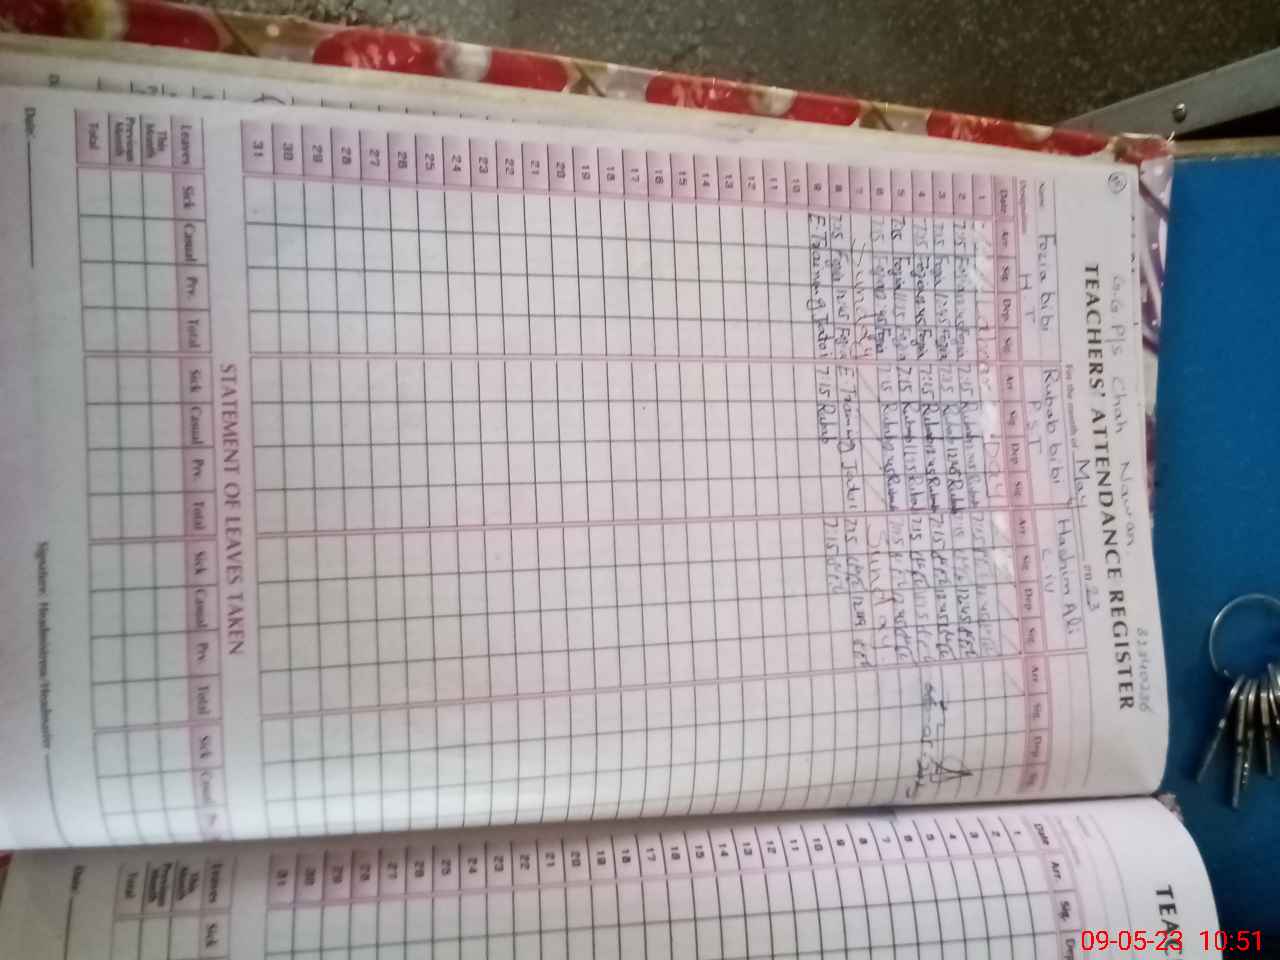 G.G P/S Chah Nawan
TEACHERS' ATTENDANCE REGISTER
For the month of May on 23
Name Fozia bibi Rubab bibi Hashim Ali
Designation H T PST C IV
Date Arr. Sig. Dep. Sig. Arr. Sig. Dep. Sig. Arr. Sig. Dep. Sig. Arr. Sig. Dep. Sig.
1 Day
2 7:15 Fozia 12:45 Fozia 7:15 Rubab 12:45 Rubab 7:15
3 7:15 Fozia 12:45 Fozia 7:15 Rubab 12:45 Rubab 7:15 12:45
4 7:15 Fozia 12:45 Fozia 7:15 Rubab 12:45 Rubab 7:15 12:45
5 7:15 Fozia 11:15 Fozia 7:15 Rubab 11:15 Rubab 7:15 11:15
6 7:15 Fozia 12:45 Fozia 7:15 Rubab 12:45 Rubab 7:15 12:45
7 Sunday Sunday
8 7:15 Fozia 12:45 Fozia E Training Jatoi 7:15
9 E Training Jatoi 7:15 Rubab 7:15
10
11
12
13
14
15
16
17
18
19
20
21
22
23
24
25
26
27
28
29
30
31
STATEMENT OF LEAVES TAKEN
Leaves Sick Casual Prv. Total Sick Casual Prv. Total Sick Casual Prv. Total Sick Casual
This Month
Previous Month
Total
Date: Signature: Headmistress/Headmaster
TEAC
Date Arr. Sig.
1
2
3
4
5
6
7
8
9
10
11
12
13
14
15
16
17
18
19
20
21
22
23
24
25
26
27
28
29
30
31
Leaves Sick
This Month
Previous Month
Total
Date:
09-05-23 10:51